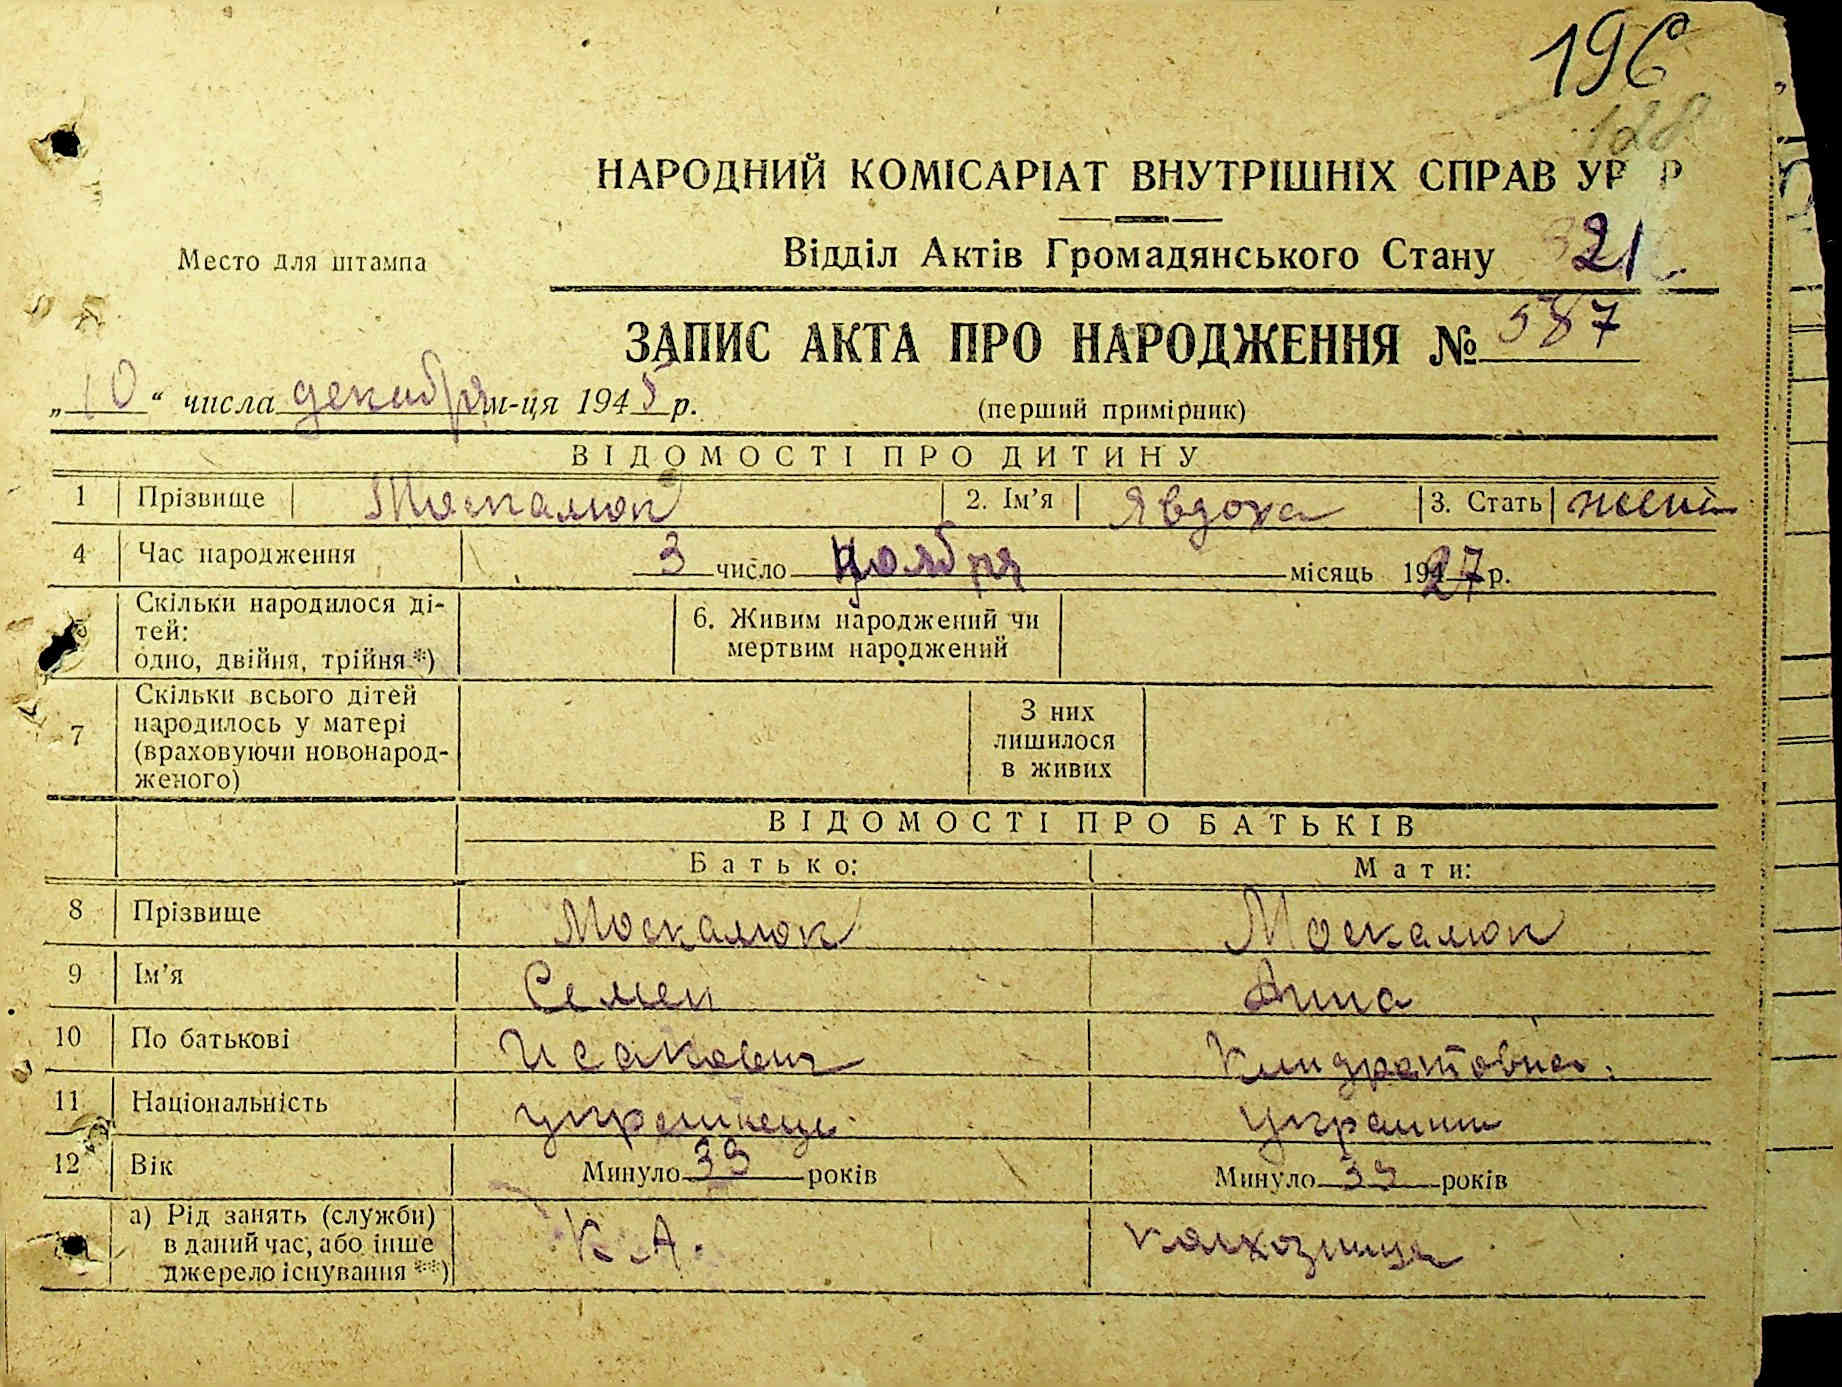 196
128
НАРОДНИЙ КОМІСАРІАТ ВНУТРІШНІХ СПРАВ УРСР
Место для штампа
Відділ Актів Громадянського Стану 21
ЗАПИС АКТА ПРО НАРОДЖЕННЯ № 587
„10“ числа декабря м-ця 1945 р. (перший примірник)
ВІДОМОСТІ ПРО ДИТИНУ
1 Прізвище Москалюк 2. Ім'я Явдоха 3. Стать жені
4 Час народження 3 число ноября місяць 1927 р.
Скільки народилося ді-
тей:
одно, двійня, трійня *)
6. Живим народжений чи
мертвим народжений
7 Скільки всього дітей
народилось у матері
(враховуючи новонарод-
женого)
З них
лишилося
в живих
ВІДОМОСТІ ПРО БАТЬКІВ
Батько: Мати:
8 Прізвище Москалюк Москалюк
9 Ім'я Семен Анна
10 По батькові Исакович Киндратовна
11 Національність украинець украин
12 Вік Минуло 39 років Минуло 39 років
а) Рід занять (служби)
в даний час, або інше
джерело існування **)
К. А. колхозница